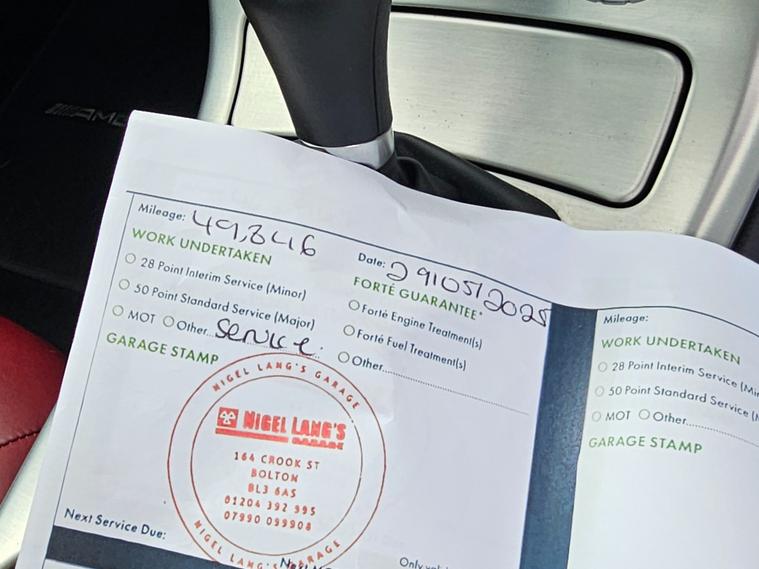 AMG
Mileage: 49,846
Date: 29/05/2025
WORK UNDERTAKEN
28 Point Interim Service (Minor)
50 Point Standard Service (Major)
MOT Other... Service
GARAGE STAMP
FORTÉ GUARANTEE*
Forté Engine Treatment(s)
Forté Fuel Treatment(s)
Other
NIGEL LANG'S GARAGE
NIGEL LANG'S
GARAGE
164 CROOK ST
BOLTON
BL3 6AS
01204 392 995
07990 099908
NIGEL LANG'S GARAGE
Next Service Due:
Mileage:
WORK UNDERTAKEN
28 Point Interim Service (Min
50 Point Standard Service (
MOT Other
GARAGE STAMP